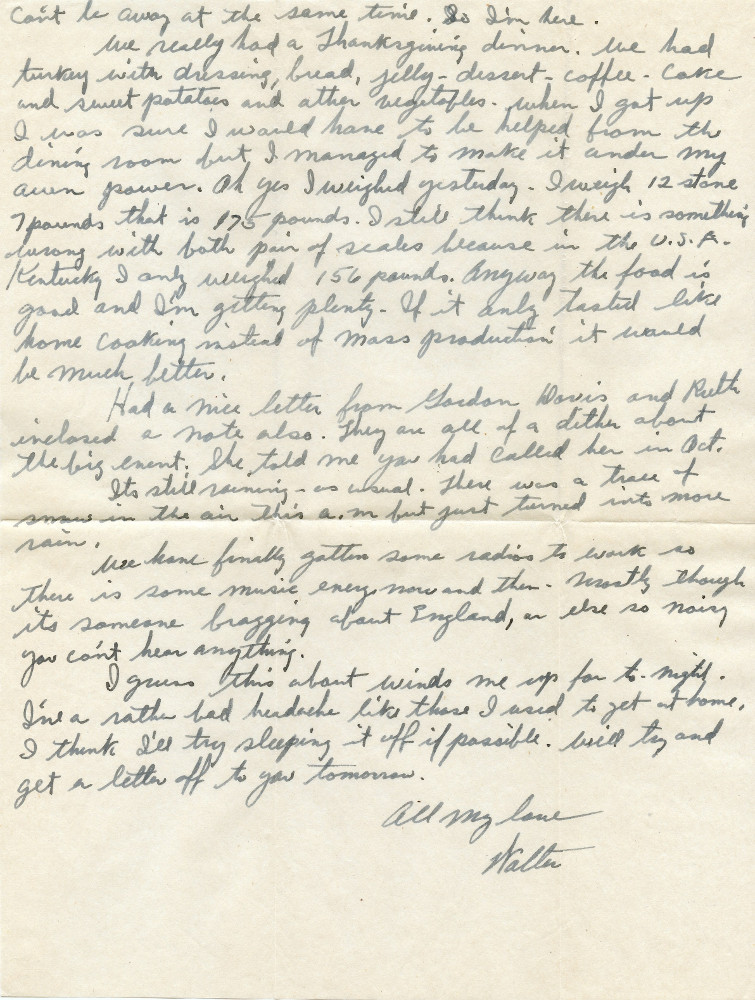 Can't be away at the same time. So I'm here.
We really had a Thanksgiving dinner. We had
turkey with dressing, bread, jelly - dessert - coffee - cake
and sweet potatoes and other vegetables. When I got up
I was sure I would have to be helped from the
dining room but I managed to make it under my
own power. Oh yes I weighed yesterday - I weigh 12 stone
7 pounds that is 175 pounds. I still think there is something
wrong with both pair of scales because in the U.S.A. -
Kentucky I only weighed 156 pounds. Anyway the food is
good and I'm getting plenty - If it only tasted like
home cooking instead of mass production it would
be much better.
Had a nice letter from Gordon Davis and Ruth
inclosed a note also. They are all of a dither about
the big event. She told me you had called her in Oct.
Its still raining - as usual. There was a trace of
snow in the air this a.m but just turned into more
rain.
We have finally gotten some radios to work so
there is some music every now and then - Mostly though
its someone bragging about England, or else so noisy
you can't hear anything.
I guess this about winds me up for to-night.
I've a rather bad headache like those I used to get at home.
I think I'll try sleeping it off if possible. Will try and
get a letter off to you tomorrow.
All my love
Walter